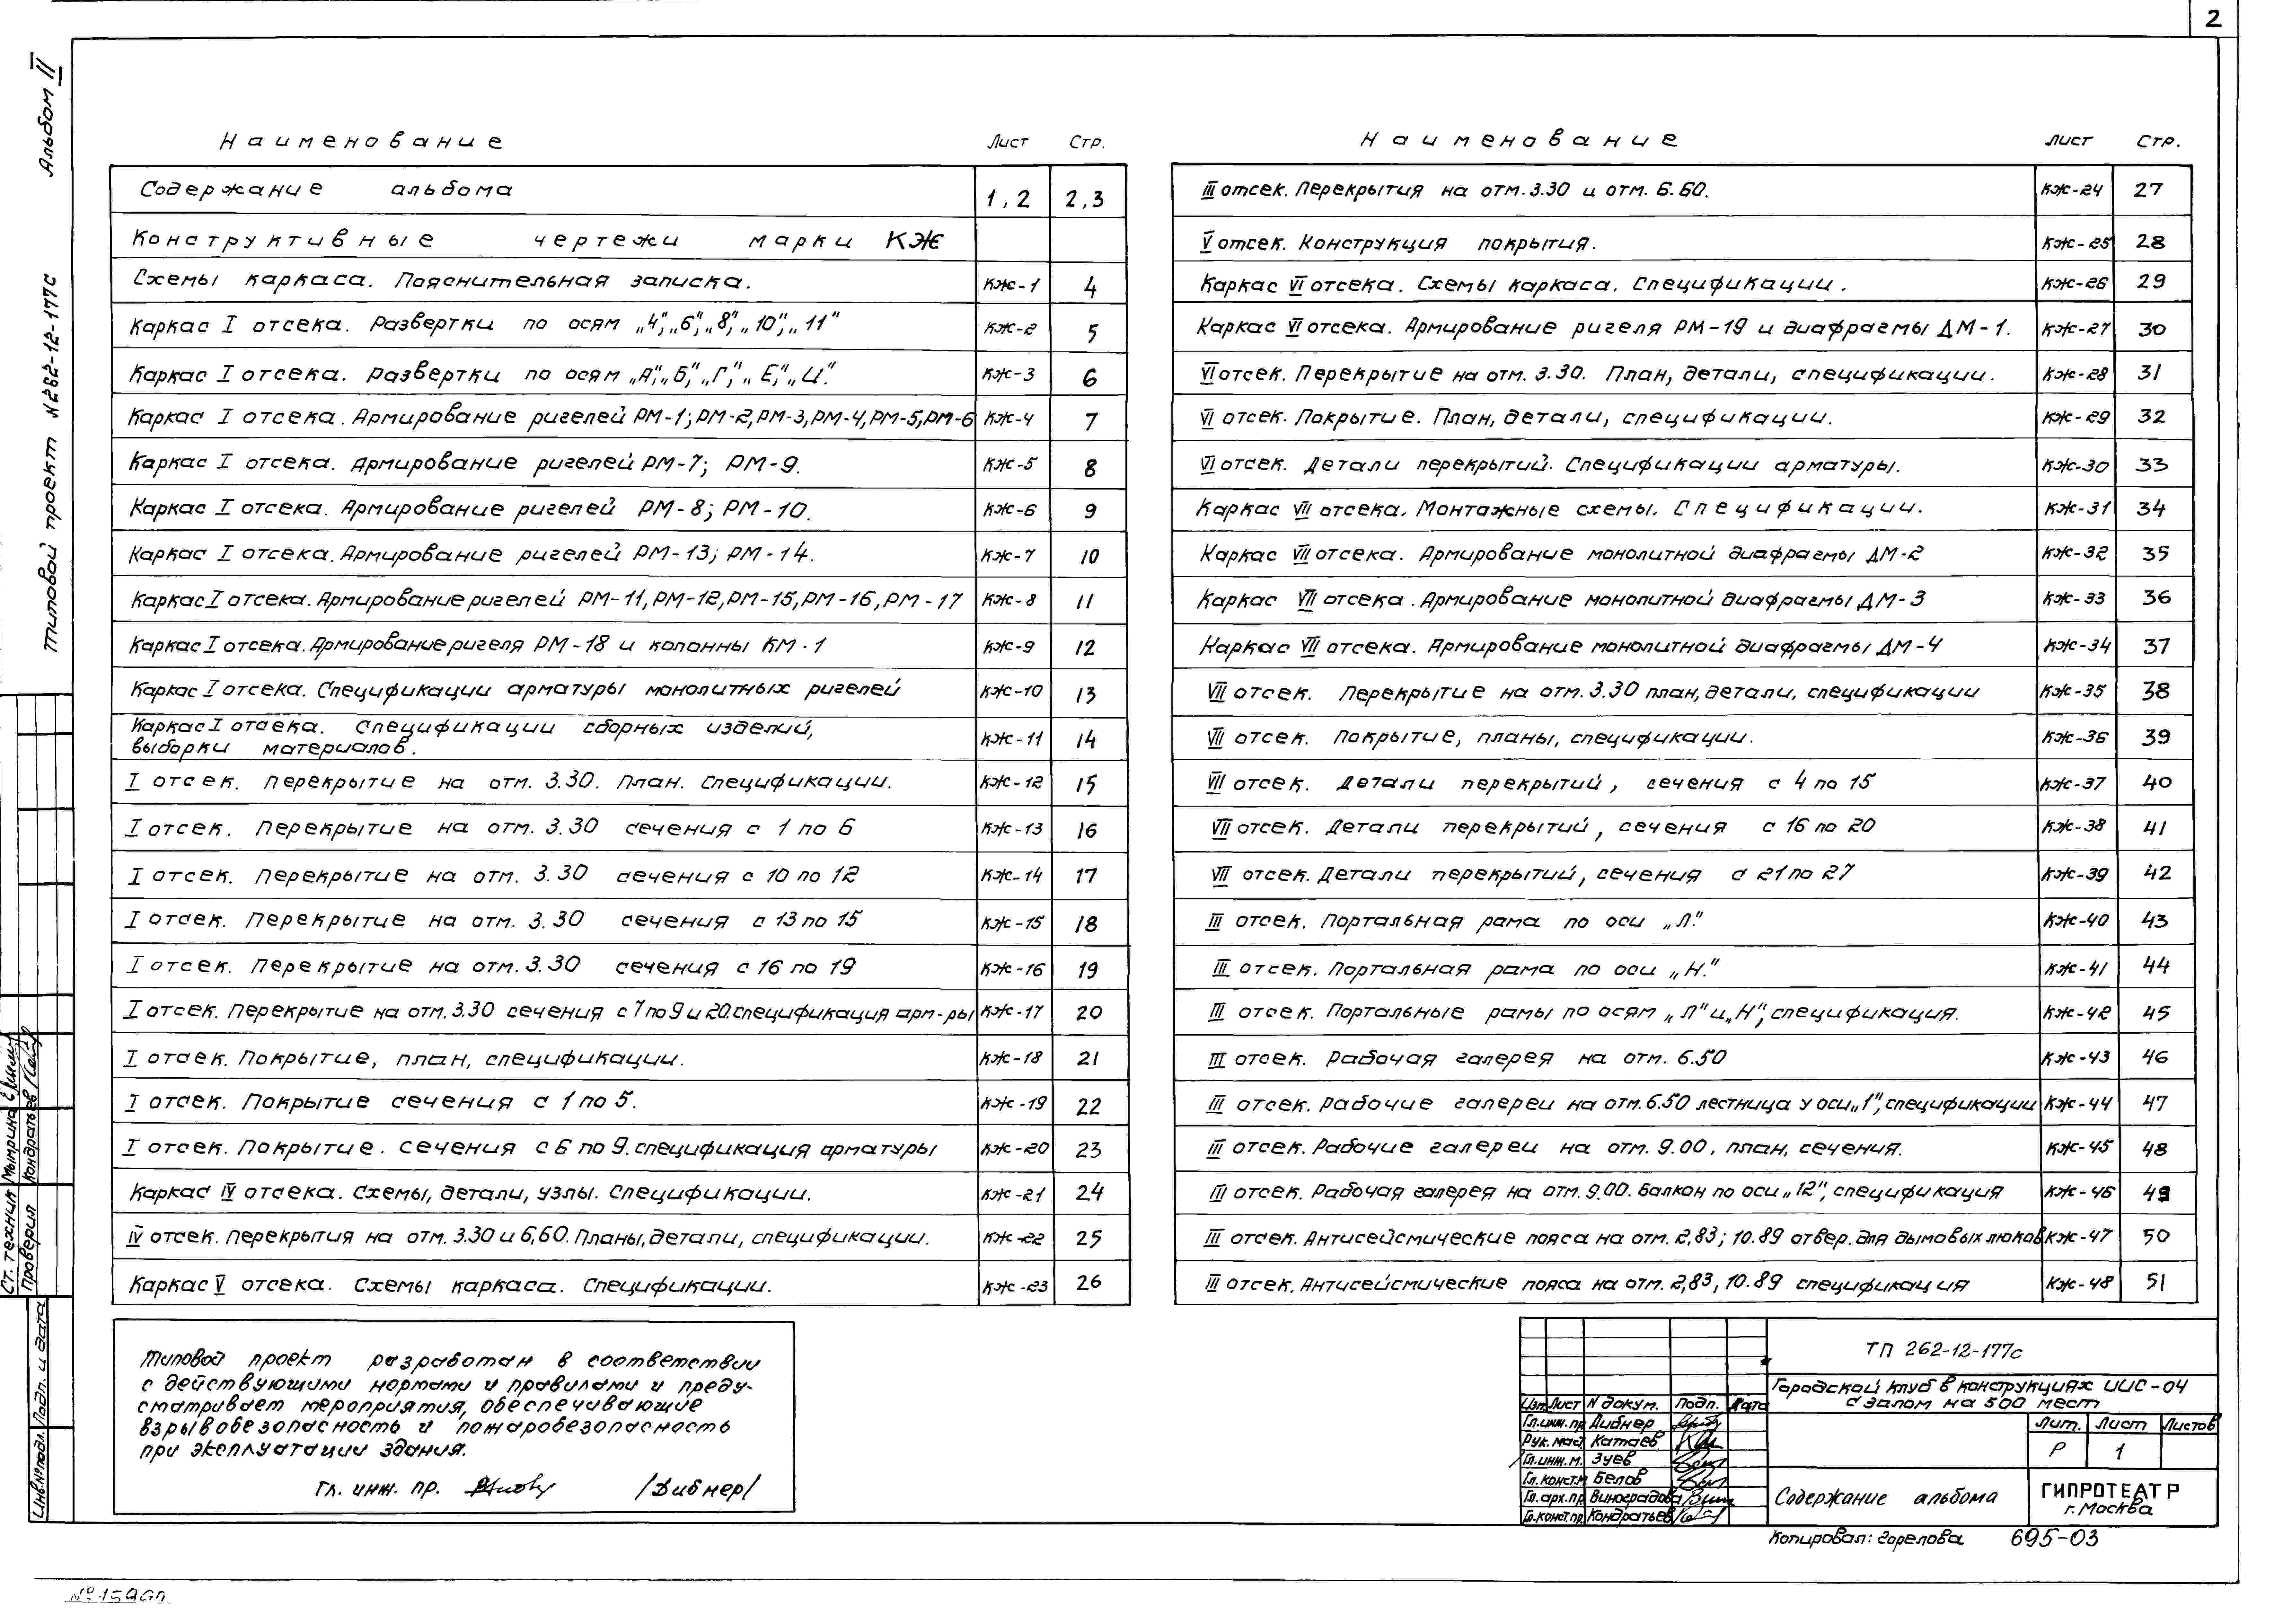 2
Альбом II
Типовой проект N262-12-177с
Наименование Лист Стр.
Содержание альбома 1,2 2,3
Конструктивные чертежи марки КЖ
Схемы каркаса. Пояснительная записка. КЖ-1 4
Каркас I отсека. Развертки по осям „4”, „6”, „8”, „10”, „11” КЖ-2 5
Каркас I отсека. Развертки по осям „А”, „Б”, „Г”, „Е”, „И”. КЖ-3 6
Каркас I отсека. Армирование ригелей РМ-1; РМ-2, РМ-3, РМ-4, РМ-5, РМ-6 КЖ-4 7
Каркас I отсека. Армирование ригелей РМ-7; РМ-9. КЖ-5 8
Каркас I отсека. Армирование ригелей РМ-8; РМ-10. КЖ-6 9
Каркас I отсека. Армирование ригелей РМ-13; РМ-14. КЖ-7 10
Каркас I отсека. Армирование ригелей РМ-11, РМ-12, РМ-15, РМ-16, РМ-17 КЖ-8 11
Каркас I отсека. Армирование ригеля РМ-18 и колонны КМ-1 КЖ-9 12
Каркас I отсека. Спецификации арматуры монолитных ригелей КЖ-10 13
Каркас I отсека. Спецификации сборных изделий,
выборки материалов. КЖ-11 14
I отсек. Перекрытие на отм. 3.30. План. Спецификации. КЖ-12 15
I отсек. Перекрытие на отм. 3.30 сечения с 1 по 6 КЖ-13 16
I отсек. Перекрытие на отм. 3.30 сечения с 10 по 12 КЖ-14 17
I отсек. Перекрытие на отм. 3.30 сечения с 13 по 15 КЖ-15 18
I отсек. Перекрытие на отм. 3.30 сечения с 16 по 19 КЖ-16 19
I отсек. Перекрытие на отм. 3.30 сечения с 7 по 9 и 20. спецификация арм-ры КЖ-17 20
I отсек. Покрытие, план, спецификации. КЖ-18 21
I отсек. Покрытие сечения с 1 по 5. КЖ-19 22
I отсек. Покрытие. сечения с 6 по 9. спецификация арматуры КЖ-20 23
Каркас IV отсека. Схемы, детали, узлы. Спецификации. КЖ-21 24
IV отсек. Перекрытия на отм. 3.30 и 6,60. Планы, детали, спецификации. КЖ-22 25
Каркас V отсека. Схемы каркаса. Спецификации. КЖ-23 26
Наименование Лист Стр.
III отсек. Перекрытия на отм. 3.30 и отм. 6.60. КЖ-24 27
V отсек. Конструкция покрытия. КЖ-25 28
Каркас VI отсека. Схемы каркаса. Спецификации. КЖ-26 29
Каркас VI отсека. Армирование ригеля РМ-19 и диафрагмы ДМ-1. КЖ-27 30
VI отсек. Перекрытие на отм. 3.30. План, детали, спецификации. КЖ-28 31
VI отсек. Покрытие. План, детали, спецификации. КЖ-29 32
VI отсек. Детали перекрытий. Спецификации арматуры. КЖ-30 33
Каркас VII отсека. Монтажные схемы. Спецификации. КЖ-31 34
Каркас VII отсека. Армирование монолитной диафрагмы ДМ-2 КЖ-32 35
Каркас VII отсека. Армирование монолитной диафрагмы ДМ-3 КЖ-33 36
Каркас VII отсека. Армирование монолитной диафрагмы ДМ-4 КЖ-34 37
VII отсек. Перекрытие на отм. 3.30 план, детали, спецификации КЖ-35 38
VII отсек. Покрытие, планы, спецификации. КЖ-36 39
VII отсек. Детали перекрытий, сечения с 4 по 15 КЖ-37 40
VII отсек. Детали перекрытий, сечения с 16 по 20 КЖ-38 41
VII отсек. Детали перекрытий, сечения с 21 по 27 КЖ-39 42
III отсек. Портальная рама по оси „Л.” КЖ-40 43
III отсек. Портальная рама по оси „Н.” КЖ-41 44
III отсек. Портальные рамы по осям „Л” и „Н”, спецификация. КЖ-42 45
III отсек. Рабочая галерея на отм. 6.50 КЖ-43 46
III отсек. Рабочие галереи на отм. 6.50 лестница у оси „1”, спецификации КЖ-44 47
III отсек. Рабочие галереи на отм. 9.00, план, сечения. КЖ-45 48
III отсек. Рабочая галерея на отм. 9.00. Балкон по оси „12”, спецификация КЖ-46 49
III отсек. Антисейсмические пояса на отм. 2,83; 10.89 отвер. для дымовых люков КЖ-47 50
III отсек. Антисейсмические пояса на отм. 2,83, 10.89 спецификация КЖ-48 51
Типовой проект разработан в соответствии
с действующими нормами и правилами и преду-
сматривает мероприятия, обеспечивающие
взрывобезопасность и пожаробезопасность
при эксплуатации здания.
Гл. инж. пр. /Дибнер/
ТП 262-12-177с
Городской клуб в конструкциях ИИС-04
с залом на 500 мест
Изм. Лист N докум. Подп. Дата
Гл. инж. пр. Дибнер
Рук. маст. Катаев
Гл. инж. м. Зуев
Гл. конст. м. Белов
Гл. арх. пр. Виноградова
Гл. конст. пр. Кондратьев
Лит. Лист Листов
Р 1
Содержание альбома
ГИПРОТЕАТР
г. Москва
Копировал: Горелова 695-03
Ст. техник Мымрина
Проверил Кондратьев
Инв. № подл. Подп. и дата